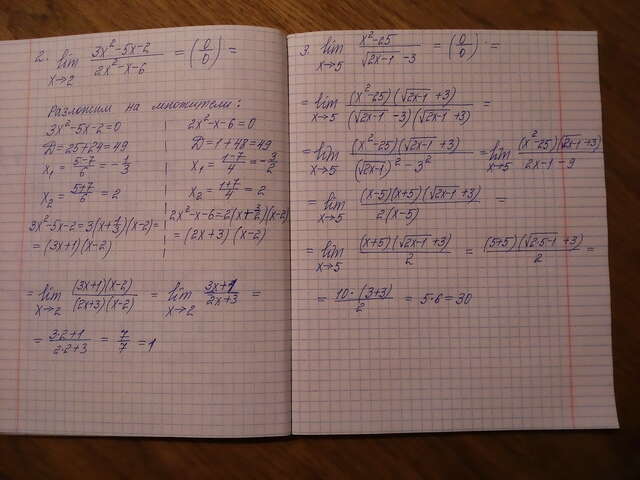 2. lim x→2 (3x²-5x-2)/(2x²-x-6) = (0/0) =
Разложим на множители:
3x²-5x-2=0
D=25+24=49
x₁ = (5-7)/6 = -1/3
x₂ = (5+7)/6 = 2
3x²-5x-2=3(x+1/3)(x-2)=
=(3x+1)(x-2)
2x²-x-6=0
D=1+48=49
x₁ = (1-7)/4 = -3/2
x₂ = (1+7)/4 = 2
2x²-x-6=2(x+3/2)(x-2)
=(2x+3)(x-2)
= lim x→2 ((3x+1)(x-2))/((2x+3)(x-2)) = lim x→2 (3x+1)/(2x+3) =
= (3·2+1)/(2·2+3) = 7/7 = 1
3. lim x→5 (x²-25)/(√(2x-1) -3) = (0/0) =
= lim x→5 ((x²-25)(√(2x-1) +3))/((√(2x-1) -3)(√(2x-1) +3)) =
= lim x→5 ((x²-25)(√(2x-1) +3))/((√(2x-1))² - 3²) = lim x→5 ((x²-25)(√(2x-1) +3))/(2x-1-9)
= lim x→5 ((x-5)(x+5)(√(2x-1) +3))/(2(x-5)) =
= lim x→5 ((x+5)(√(2x-1) +3))/2 = ((5+5)(√(2·5-1) +3))/2 =
= (10·(3+3))/2 = 5·6=30